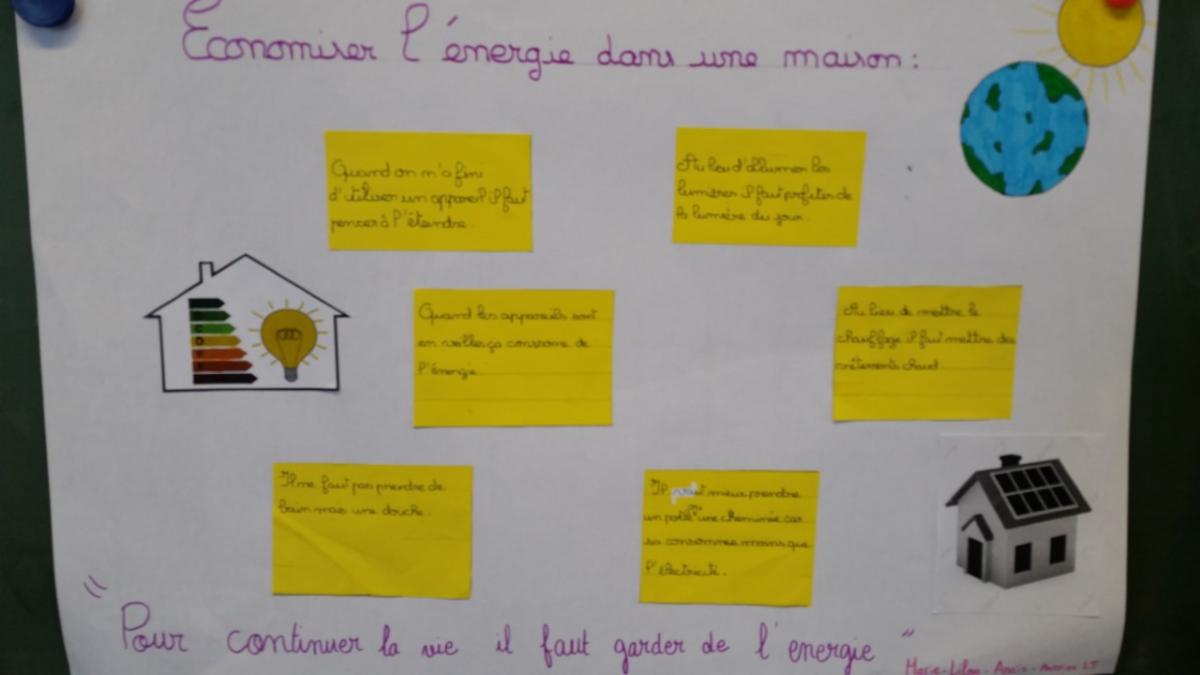 Economiser l'énergie dans une maison :
Quand on n'a fini
d'utiliser un appareil il faut
penser à l'éteindre.
Au lieu d'allumer les
lumières il faut profiter de
la lumière du jour.
Quand les appareils sont
en veille ça consome de
l'énergie.
Au lieu de mettre le
chauffage il faut mettre des
vêtements chaud.
Il ne faut pas prendre de
bain mais une douche.
Il vaut mieux prendre
un poêle une cheminée car
sa consomme moins que
l'électricité.
"Pour continuer la vie il faut garder de l'énergie"
Marie-Lilou-Anaïs-